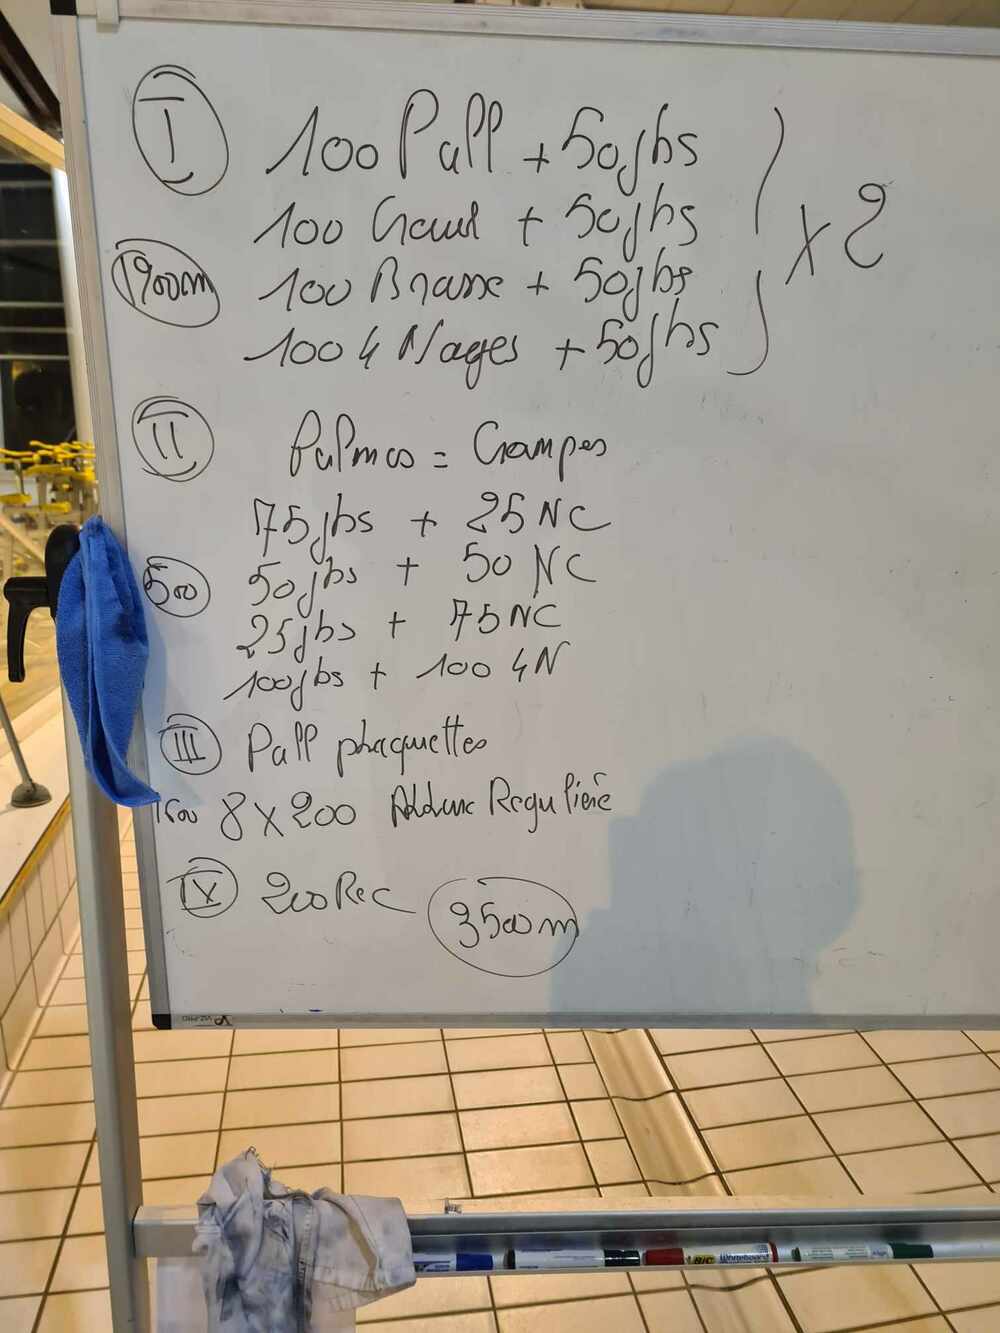 I 100 Pull + 50 jbs
100 Crawl + 50 jbs
x 2
1900m 100 Brasse + 50 jbs
100 4 Nages + 50 jbs
II Palmes = Crampes
75 jbs + 25 NC
500 50 jbs + 50 NC
25 jbs + 75 NC
100 jbs + 100 4N
III Pull plaquettes
1600 8 X 200 Allure Regulière
IV 200 Rec 3500m
BIC Whiteboard